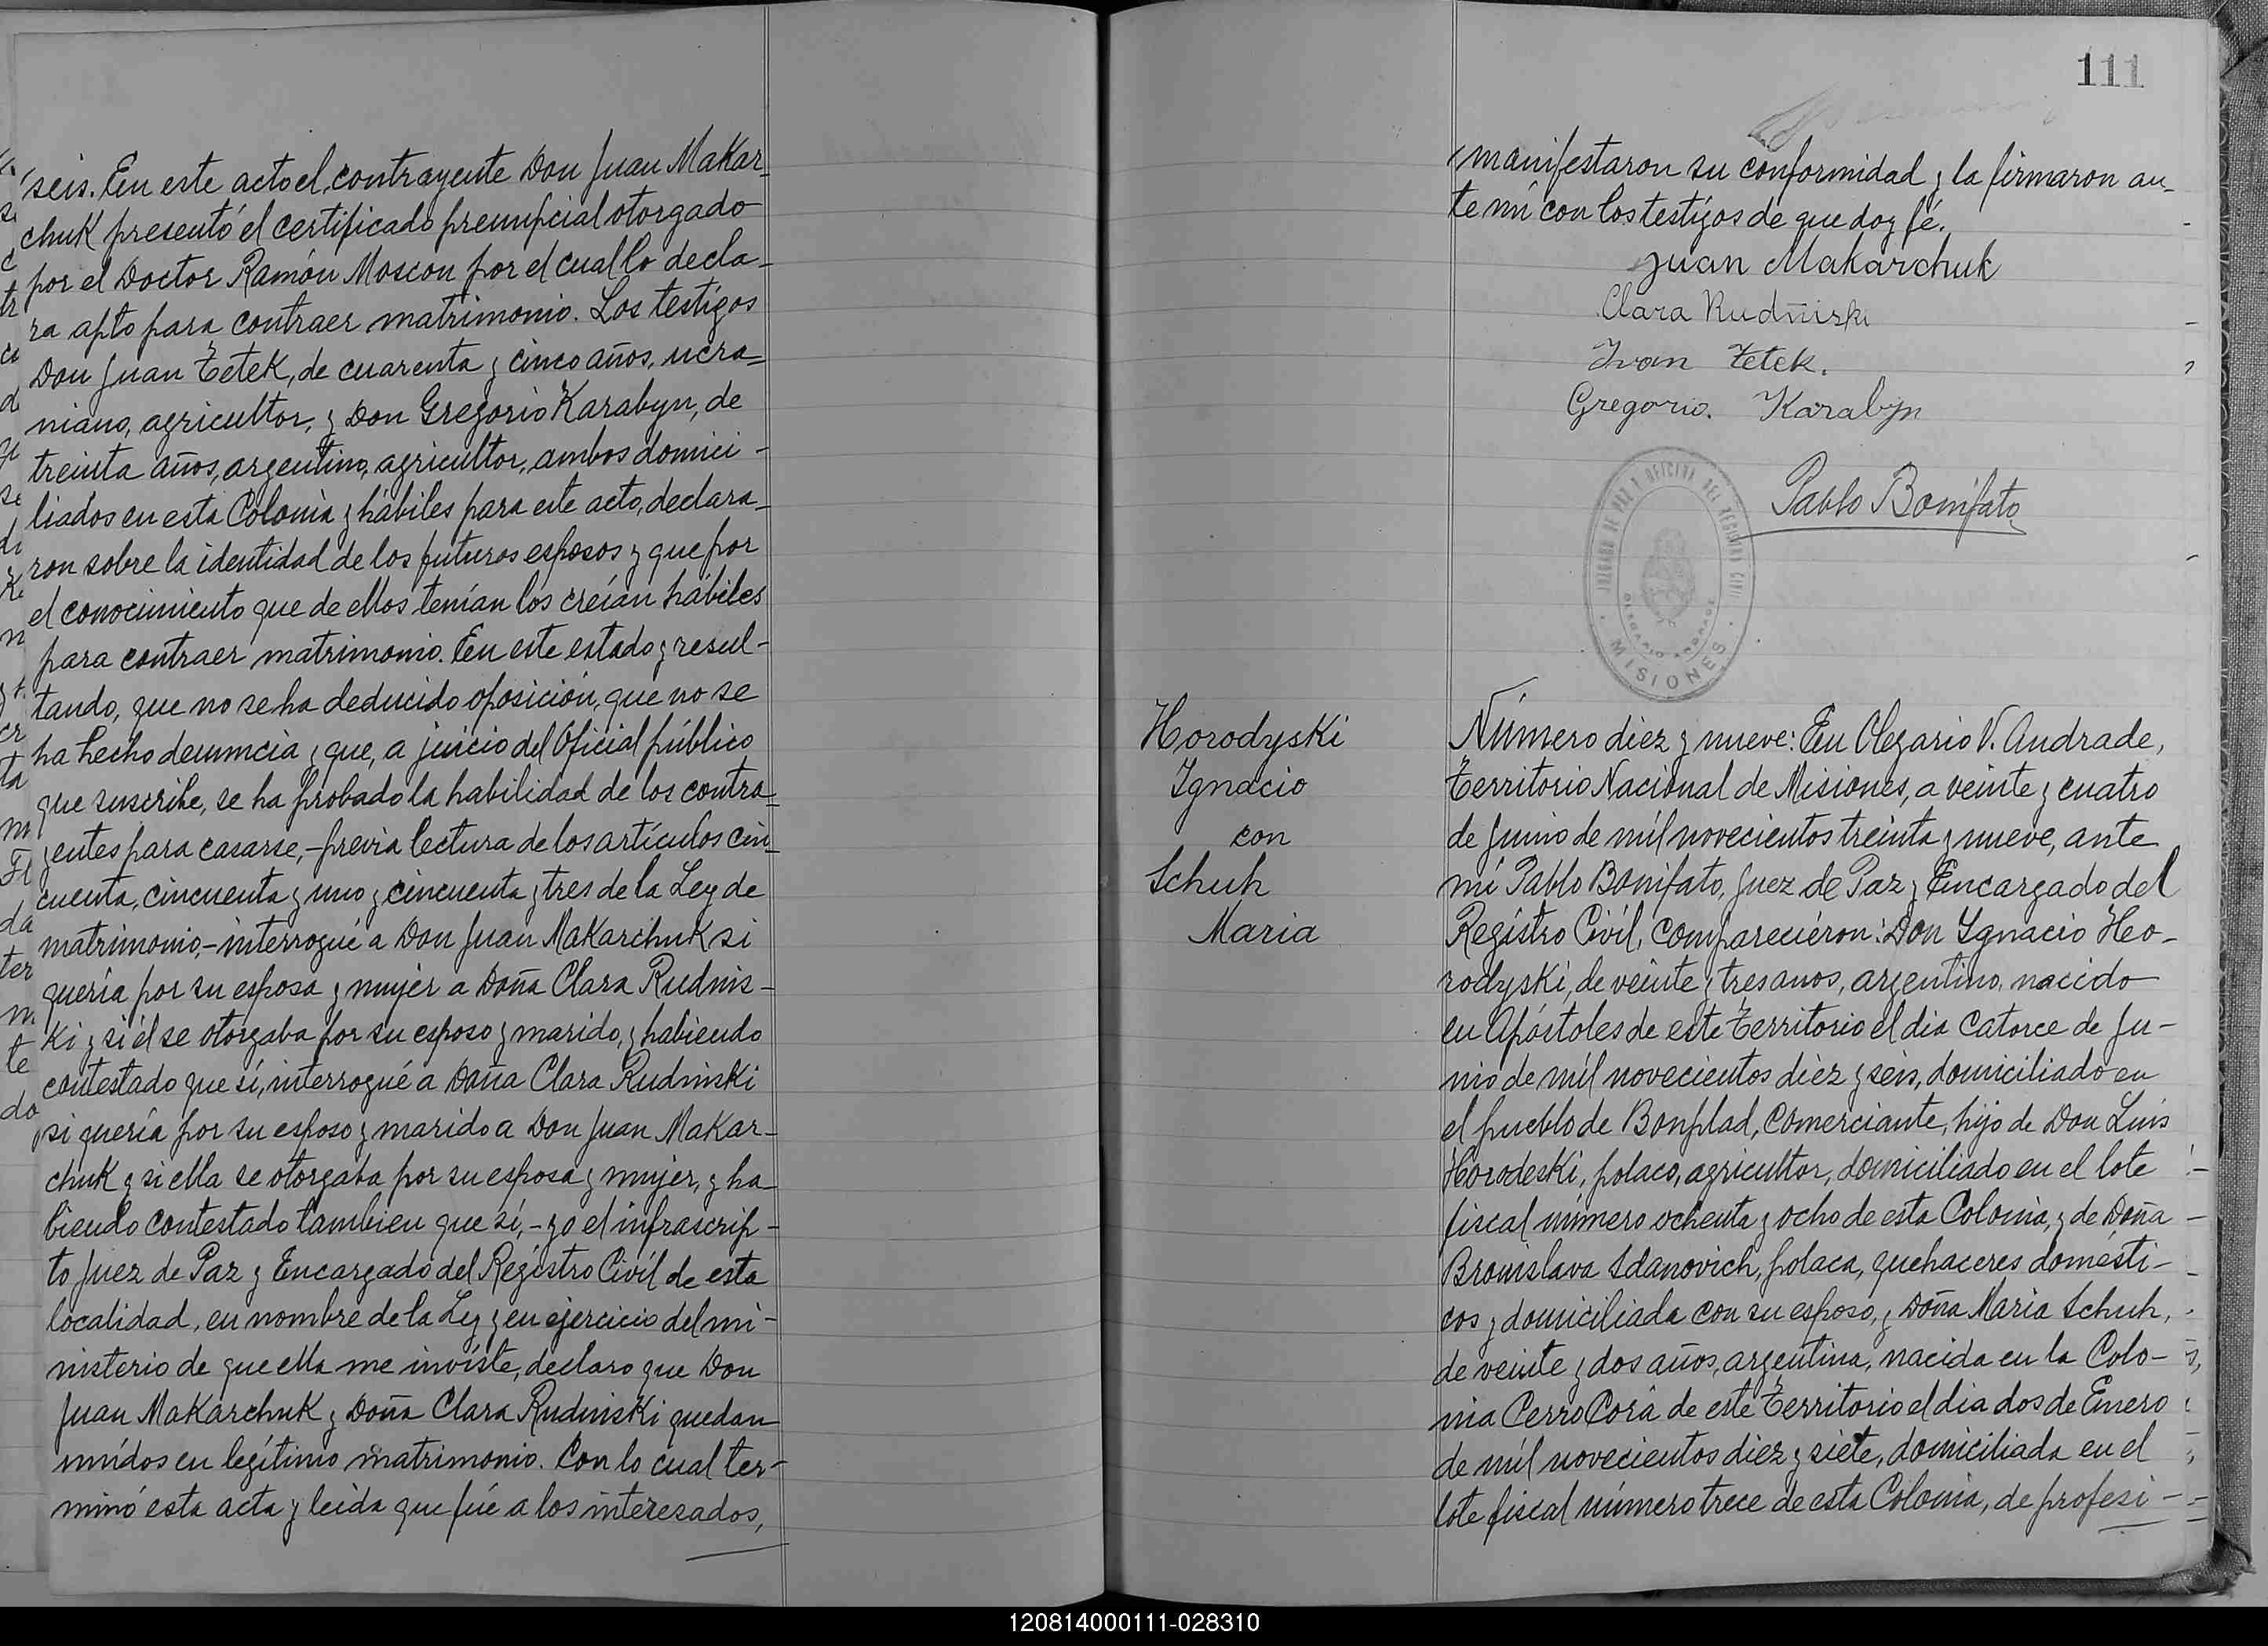 seis. En este acto el contrayente Don Juan Makar-
chuk presentó el certificado prenupcial otorgado
por el Doctor Ramón Moscon por el cual lo decla-
ra apto para contraer matrimonio. Los testigos
Don Juan Tetek, de cuarenta y cinco años, ucra-
niano, agricultor, y Don Gregorio Karabyn, de
treinta años, argentino, agricultor, ambos domici-
liados en esta Colonia y hábiles para este acto, declara-
ron sobre la identidad de los futuros esposos y que por
el conocimiento que de ellos tenían los creían hábiles
para contraer matrimonio. En este estado y resul-
tando, que no se ha deducido oposición, que no se
ha hecho denuncia y que, a juicio del Oficial público
que suscribe, se ha probado la habilidad de los contra-
yentes para casarse,- previa lectura de los artículos cin-
cuenta, cincuenta y uno y cincuenta y tres de la Ley de
matrimonio,- interrogué a Don Juan Makarchuk si
quería por su esposa y mujer a Doña Clara Rudnis-
ki y si él se otorgaba por su esposo y marido, y habiendo
contestado que sí, interrogué a Doña Clara Rudniski
si quería por su esposo y marido a Don Juan Makar-
chuk y si ella se otorgaba por su esposa y mujer, y ha-
biendo contestado tambien que sí,- yo el infrascrip-
to Juez de Paz y Encargado del Registro Civíl de esta
localidad, en nombre de la Ley y en ejercicio del mi-
nisterio de que ella me inviste, declaro que Don
Juan Makarchuk y Doña Clara Rudniski quedan
unídos en legítimo matrimonio. Con lo cual ter-
minó esta acta y leida que fué a los interesados,
111
manifestaron su conformidad y la firmaron an-
te mí con los testigos de que doy fé.
Juan Makarchuk
Clara Rudñiski
Ivan Tetek.
Gregorio. Karabyn
JUZGADO DE PAZ Y OFICINA DEL REGISTRO CIVIL
OLEGARIO ANDRADE
MISIONES
Pablo Bonifato
Horodyski
Ignacio
con
Schuh
Maria
Número diez y nueve: En Olegario V. Andrade,
Territorio Nacional de Misiones, a veinte y cuatro
de Junio de mil novecientos treinta y nueve, ante
mí Pablo Bonifato, Juez de Paz y Encargado del
Registro Civíl, comparecieron: Don Ygnacio Heo-
rodyski, de veinte y tres anos, argentino, nacido
en Apóstoles de este Territorio el dia catorce de Ju-
nio de mil novecientos diez y seis, domiciliado en
el pueblo de Bonplad, comerciante, hijo de Don Luis
Horodeski, polaco, agricultor, domiciliado en el lote
fiscal número ochenta y ocho de esta Colonia, y de Doña
Bronislava Sdanovich, polaca, quehaceres domésti-
cos y domiciliada con su esposo, y Doña Maria Schuh,
de veinte y dos años, argentina, nacida en la Colo-
nia Cerro Corá de este Territorio el dia dos de Enero
de mil novecientos diez y siete, domiciliada en el
lote fiscal número trece de esta Colonia, de profesi-
120814000111-028310